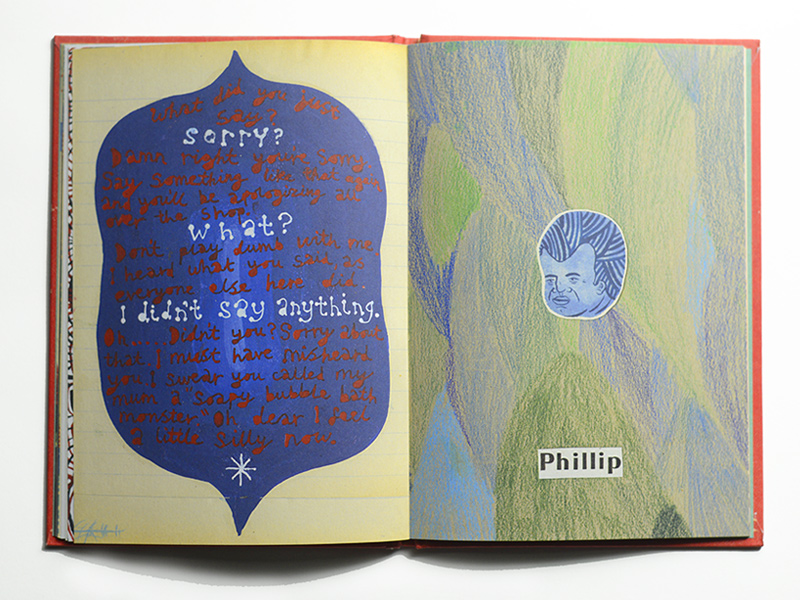 What did you just
say?
Sorry?
Damn right you're sorry.
Say something like that again
and you'll be apologizing all
over the shop.
What?
Don't play dumb with me,
I heard what you said, as
everyone else here did.
I didn't say anything.
Oh..... Didn't you? Sorry about
that. I must have misheard
you, I swear you called my
mum a soapy bubble bath
monster" Oh dear I feel
a little silly now.
Phillip